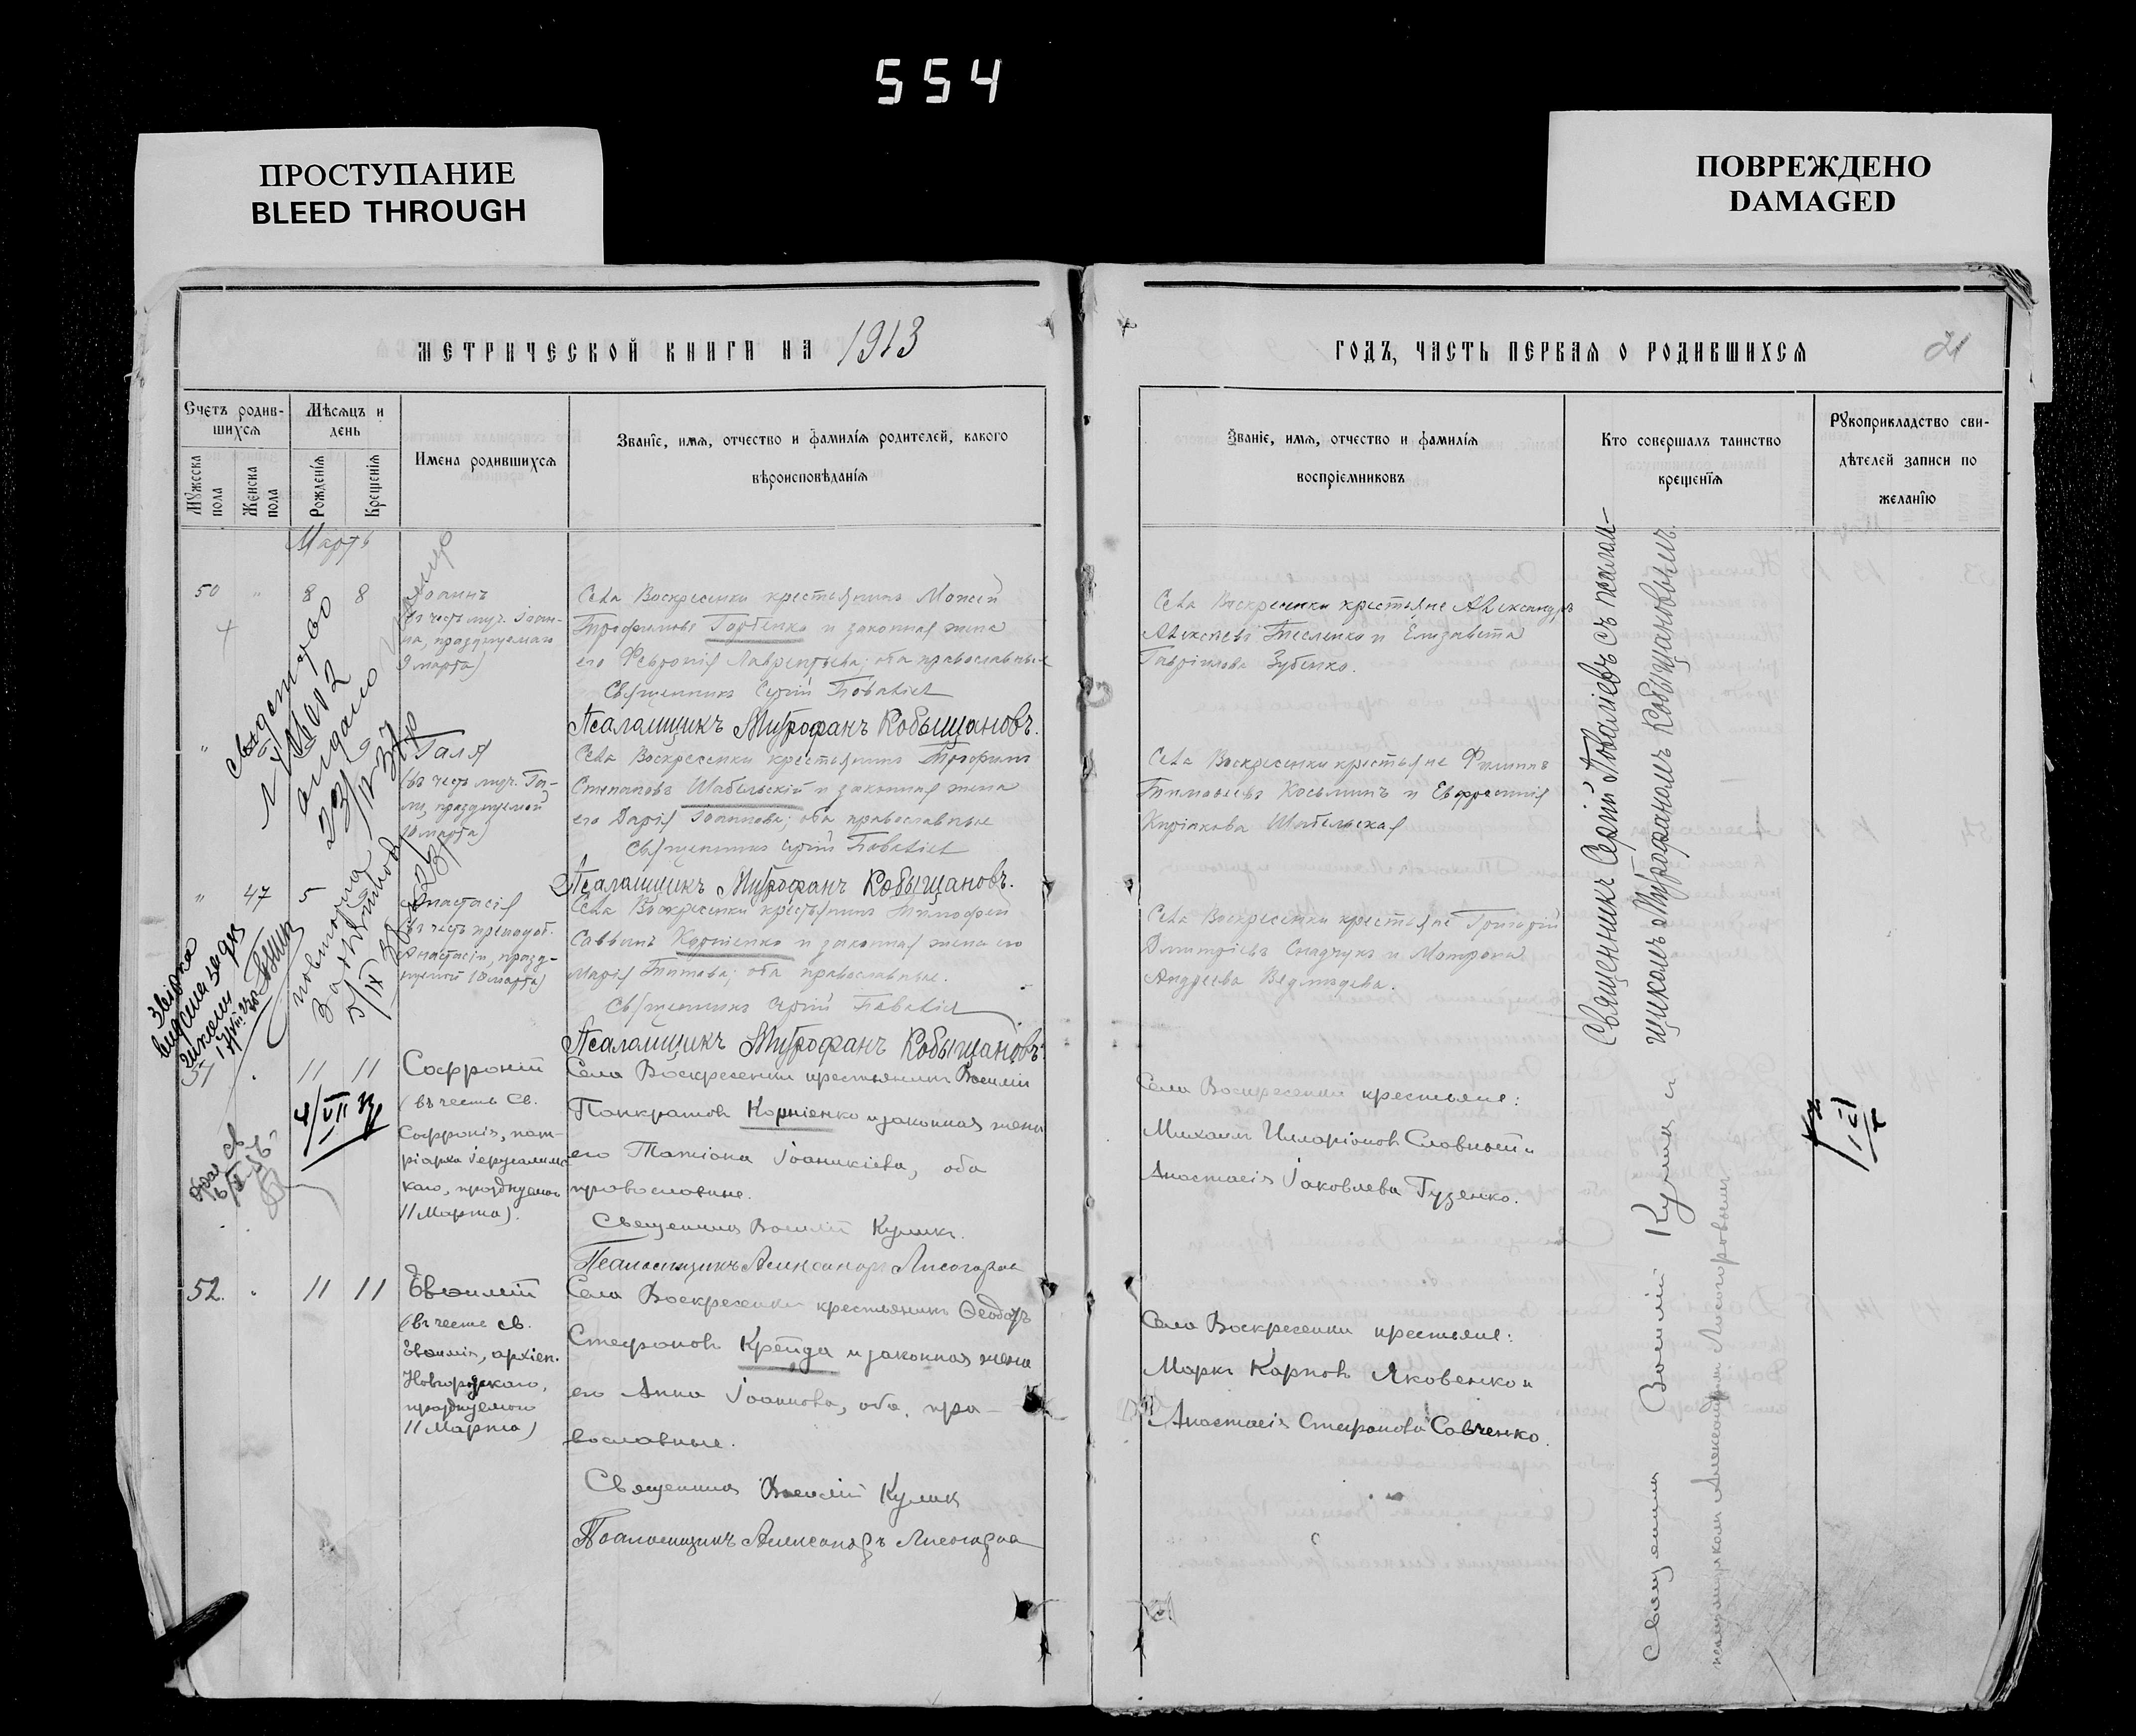 554
ПРОСТУПАНИЕ
BLEED THROUGH
ПОВРЕЖДЕНО
DAMAGED
МЕТРИЧЕСКОЙ КНИГИ НА 1913
ГОДЪ, ЧАСТЬ ПЕРВАЯ О РОДИВШИХСЯ
21
Счетъ родив-
шихся
Мужеска пола
Женска пола
Мѣсяцъ и
день
Рожденія
Крещенія
Имена родившихся
Званіе, имя, отчество и фамилія родителей, какого
вѣроисповѣданія
Званіе, имя, отчество и фамилія
воспріемниковъ
Кто совершалъ таинство
крещенія
Рукоприкладство сви-
дѣтелей записи по
желанію
Мартъ
50 " 8 8
Іоаннъ
(въ честь муч. Іоан-
на, празднуемаго
9 марта)
Села Воскресенки крестьянинъ Моисей
Трофимовъ Горбенко и законная жена
его Февронія Лаврентьева; оба православные
Священникъ Сергій Поваліевъ
Псаломщикъ Митрофанъ Кобыщановъ.
Села Воскресенки крестьяне Александръ
Алексѣевъ Тесленко и Елизавета
Гавріилова Зубенко.
Галя
(въ честь муч. Га-
ли, празднуемой
10 марта)
Села Воскресенки крестьянинъ Трофимъ
Степановъ Шабельскій и законная жена
его Дарія Іоаннова; оба православные
Священникъ Сергій Поваліевъ
Псаломщикъ Митрофанъ Кобыщановъ.
Села Воскресенки крестьяне Филиппъ
Тимофеевъ Косьминъ и Евфросинія
Киріакова Шабельская
" 47 5 9
Анастасія
(въ честь преподоб.
Анастасіи, празд-
нуемой 10 марта)
Села Воскресенки крестьянинъ Тимофей
Саввинъ Корніенко и законная жена его
Марія Титова; оба православные.
Священникъ Сергій Поваліевъ
Псаломщикъ Митрофанъ Кобыщановъ
Села Воскресенки крестьяне Григорій
Димитріевъ Снадчукъ и Матрона
Андреева Ведмидева.
51 " 11 11
Софроній
(въ честь Св.
Софронія, пат-
ріарха Іерусалимс-
каго, празднуемаго
11 Марта).
Села Воскресенки крестьянинъ Василій
Панкратовъ Корніенко и законная жена
его Татіана Іоаникіева, оба
православные.
Священникъ Василій Куликъ.
Псаломщикъ Александръ Лисогоров
Села Воскресенки крестьяне:
Михаилъ Иларіоновъ Славный и
Анастасія Іаковлева Гузенко.
52. " 11 11
Евѳимій
(въ честь св.
Евѳимія, архіеп.
Новгородскаго,
празднуемаго
11 Марта)
Села Воскресенки крестьянинъ Ѳеодоръ
Стефановъ Крейда и законная жена
его Анна Іоаннова, оба пра-
вославные.
Священникъ Василій Куликъ
Псаломщикъ Александръ Лисогоров
Села Воскресенки крестьяне:
Маркъ Карповъ Яковенко и
Анастасія Стефанова Савченко.
Священникъ Сергій Поваліевъ съ псалом-
щикомъ Митрофаномъ Кобыщановымъ.
Священникъ Василій Куликъ и
псаломщикомъ Александромъ Лисогоровымъ